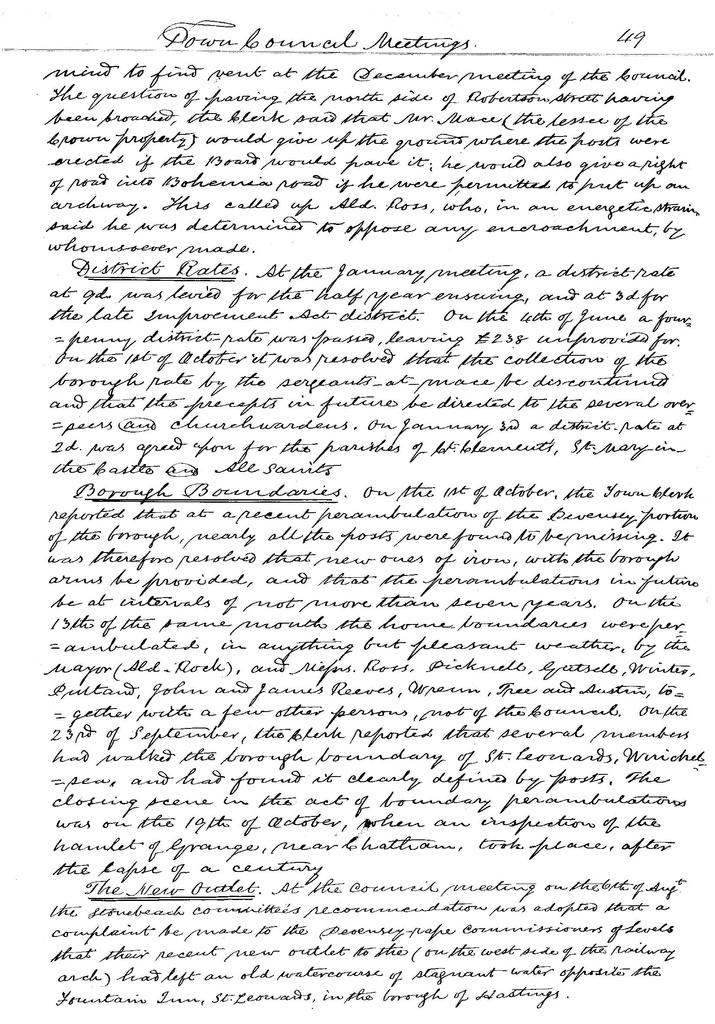 Town Council Meetings. 49
mind to find vent at the December meeting of the Council.
The question of paving the north side of Robertson street having
been broached, the Clerk said that Mr. Mace (the lessee of the
Crown property) would give up the ground where the posts were
erected if the Board would pave it; he would also give a right
of road into Bohemia road if he were permitted to put up an
archway. This called up Ald. Ross, who, in an energetic strain,
said he was determined to oppose any encroachment, by
whomsoever made.
District Rates. At the January meeting, a district rate
at 9d. was levied for the half year ensuing, and at 3d for
the late Improvement Act district. On the 4th of June a four=
=penny district-rate was passed, leaving £238 unprovided for.
On the 1st of October it was resolved that the collection of the
borough rate by the sergeants-at-mace be discontinued
and that the precepts in future be directed to the several over=
=seers and churchwardens. On January 3rd a district-rate at
2d. was agreed upon for the parishes of St. Clements, St. Mary-in-
the Castle and All Saints
Borough Boundaries. On the 1st of October, the Town Clerk
reported that at a recent perambulation of the Pevensey portion
of the borough, nearly all the posts were found to be missing. It
was therefore resolved that new ones of iron, with the borough
arms be provided, and that the perambulations in future
be at intervals of not more than seven years. On the
13th of the same month the home boundaries were per=
=ambulated, in anything but pleasant weather, by the
Mayor (Ald. Rock), and Messrs. Ross, Picknell, Gutsell, Winter,
Putland, John and James Reeves, Wrenn, Tree and Austin, to=
=gether with a few other persons, not of the Council. On the
23rd of September, the Clerk reported that several members
had walked the borough boundary of St. Leonards, Winchel=
=sea, and had found it clearly defined by posts. The
closing scene in the act of boundary perambulations
was on the 19th of October, when an inspection of the
hamlet of Grange, near Chatham, took place, after
the lapse of a century
The New Outlet. At the Council meeting on the 6th of Augt.
the stonebeach committee's recommendation was adopted that a
complaint be made to the Pevensey-rape commissioners of Levels
that their recent new outlet to the (on the west side of the railway
arch) had left an old watercourse of stagnant water opposite the
Fountain Inn, St. Leonards, in the borough of Hastings.